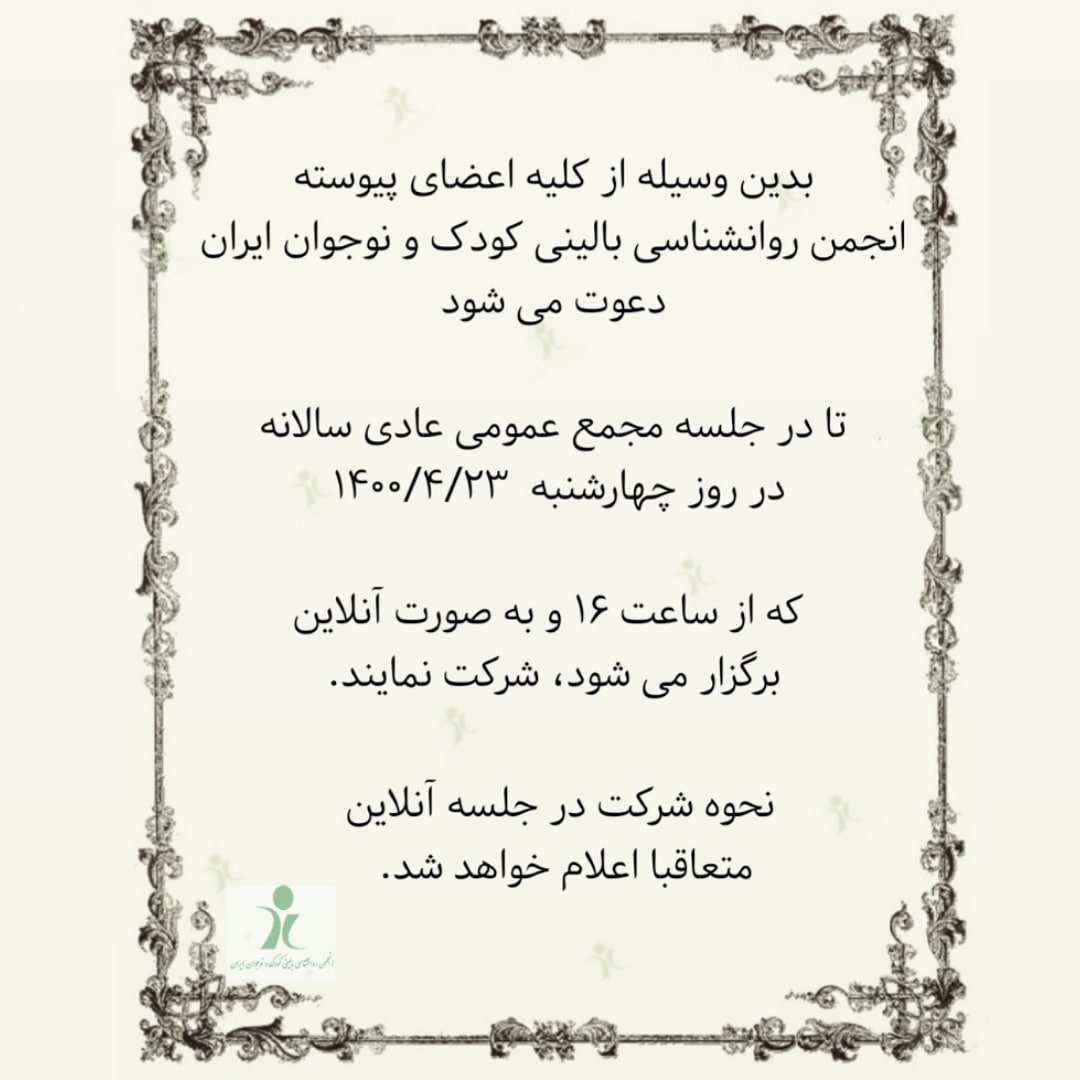 بدین وسیله از کلیه اعضای پیوسته
انجمن روانشناسی بالینی کودک و نوجوان ایران
دعوت می شود
تا در جلسه مجمع عمومی عادی سالانه
در روز چهارشنبه ۱۴۰۰/۴/۲۳
که از ساعت ۱۶ و به صورت آنلاین
برگزار می شود، شرکت نمایند.
نحوه شرکت در جلسه آنلاین
متعاقبا اعلام خواهد شد.
انجمن روانشناسی بالینی کودک و نوجوان ایران